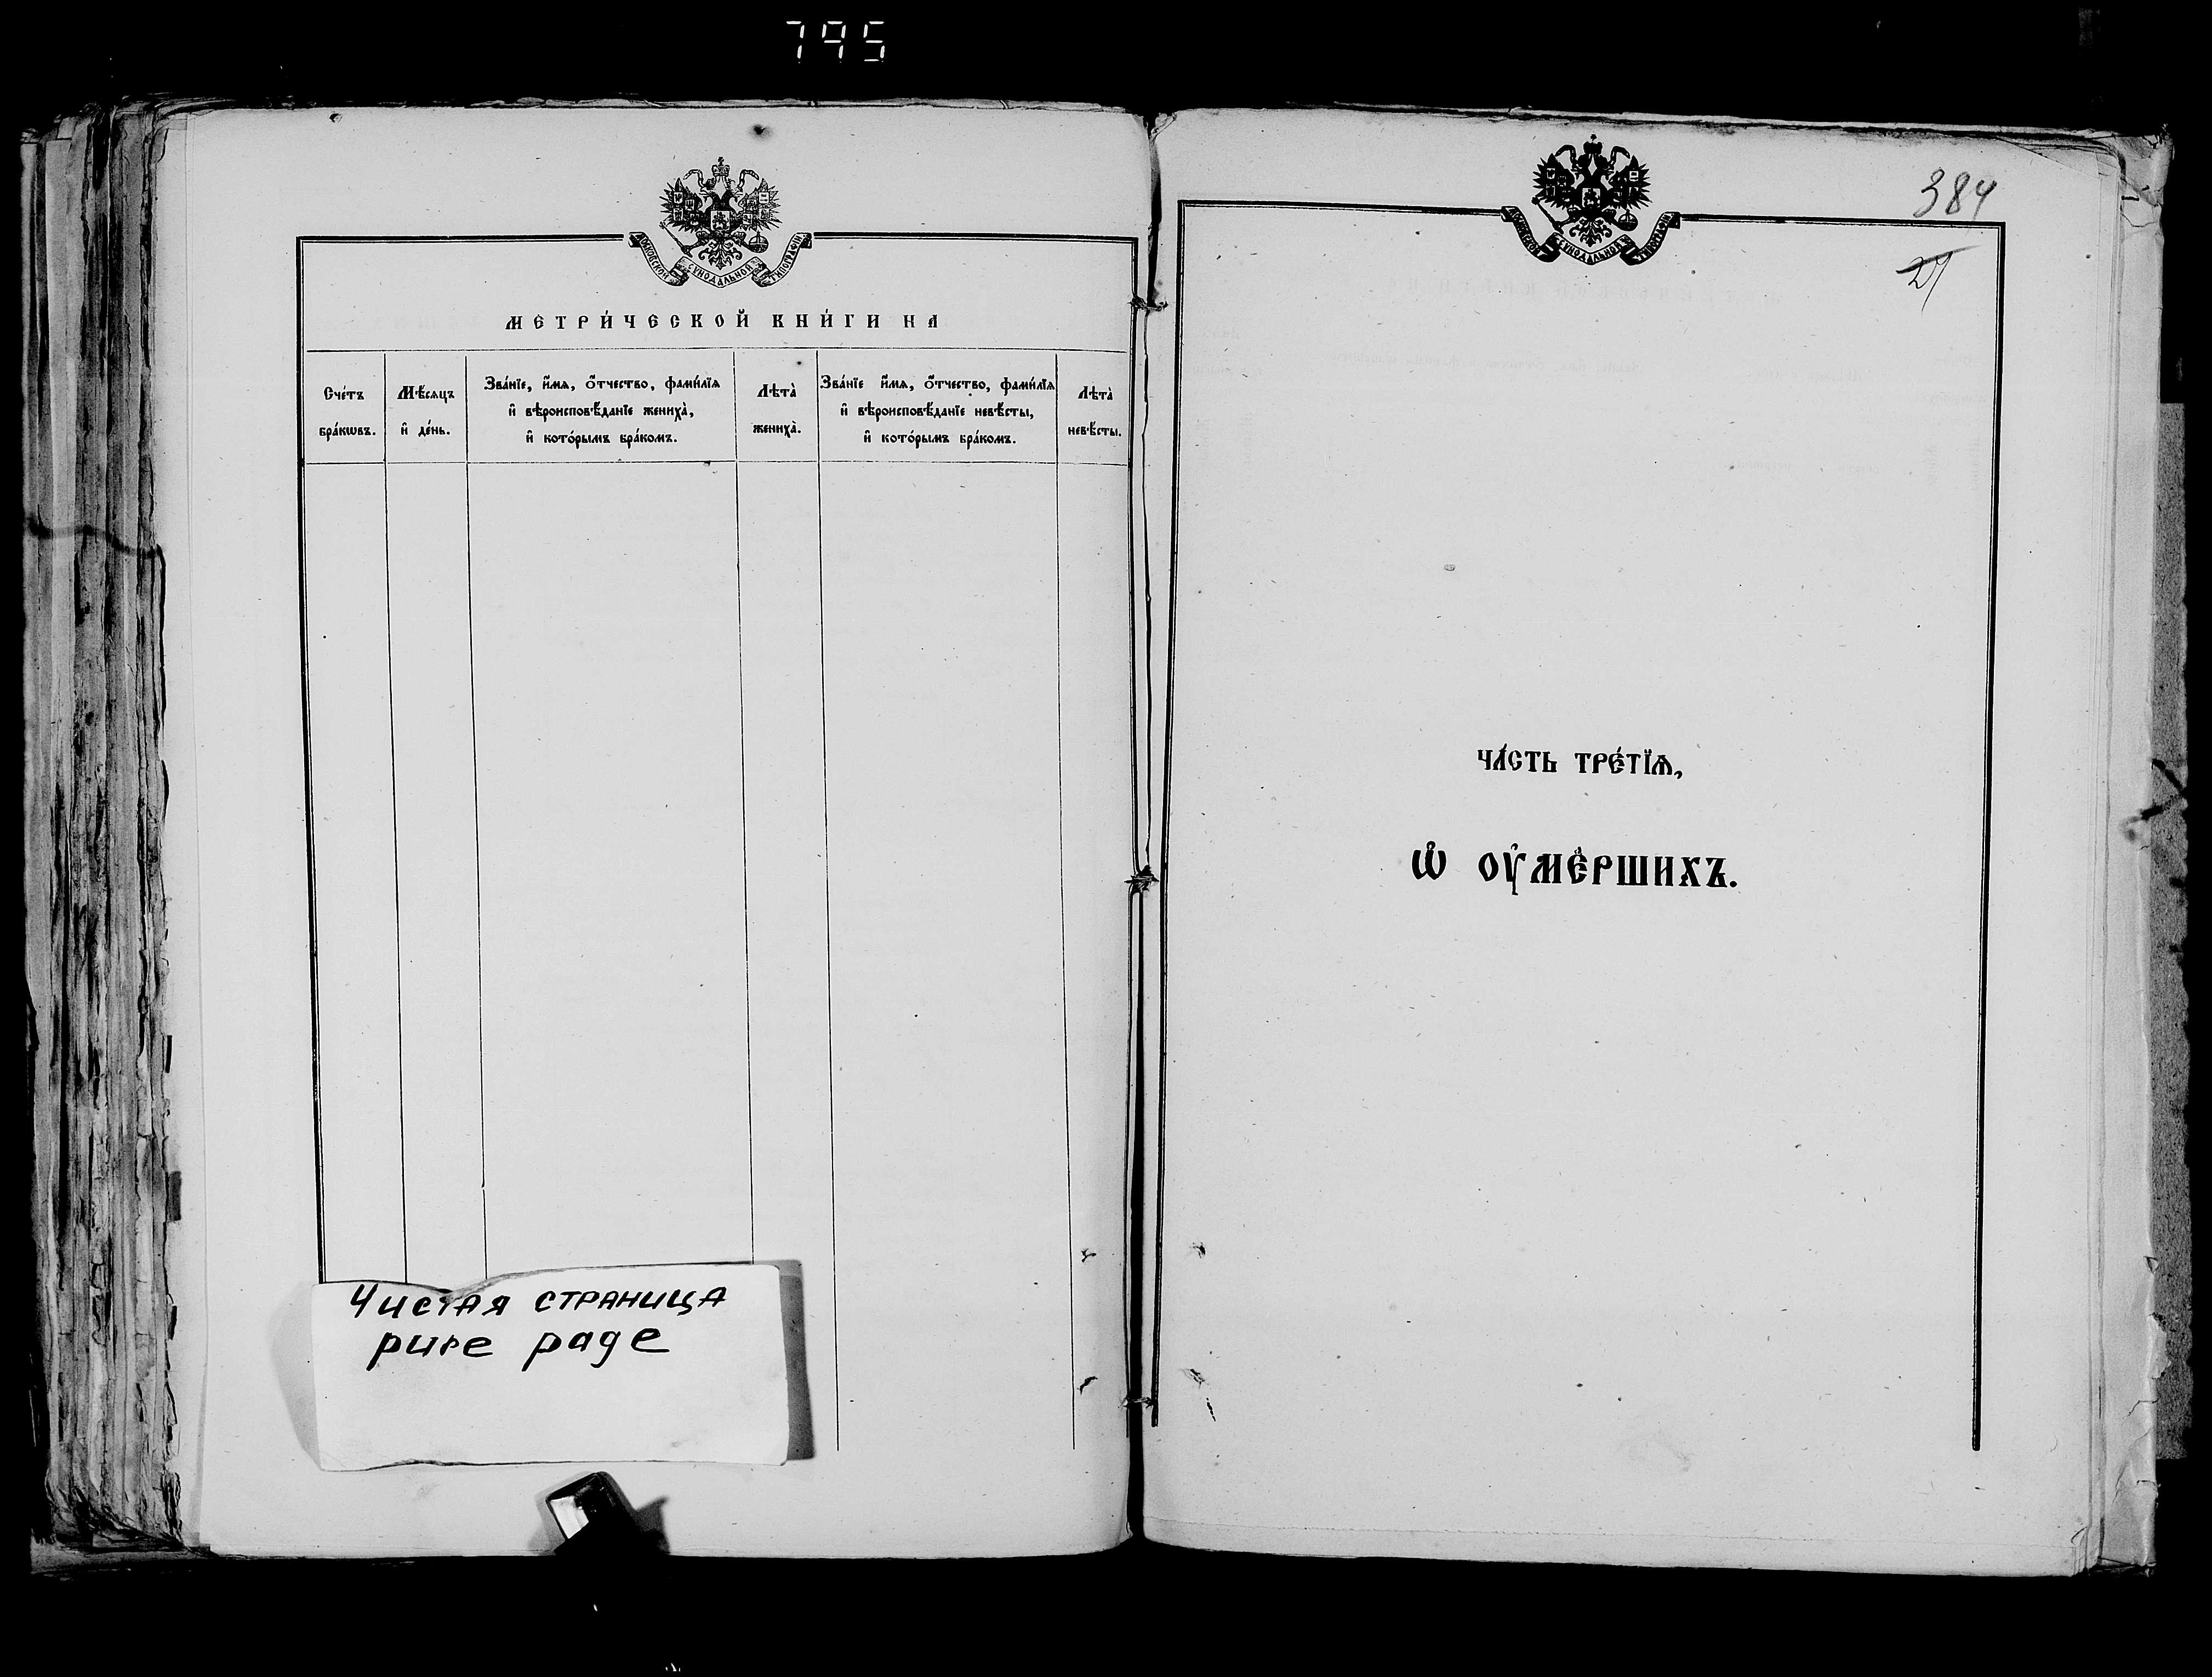 795
МОСКОВСКОЙ СУНОДАЛЬНОЙ ТИПОГРАФІИ
МЕТРИ́ЧЕСКОЙ КНИ́ГИ НА
Сче́тъ бра́кѡвъ.
Мѣ́сѧцъ и҆ де́нь.
Зва́нїе, и҆́мѧ, ѻ҆́тчество, фами́лїѧ
и҆ вѣроисповѣ́данїе жениха̀,
и҆ кото́рымъ бра́комъ.
Лѣта̀ жениха̀.
Зва́нїе и҆́мѧ, ѻ҆́тчество, фами́лїѧ
и҆ вѣроисповѣ́данїе невѣ́сты,
и҆ кото́рымъ бра́комъ.
Лѣта̀ невѣ́сты.
Чистая страница
pure page
МОСКОВСКОЙ СУНОДАЛЬНОЙ ТИПОГРАФІИ
384
27
ЧА́СТЬ ТРЕ́ТЇѦ,
Ѡ҆ ОУ҆МЕ́РШИХЪ.